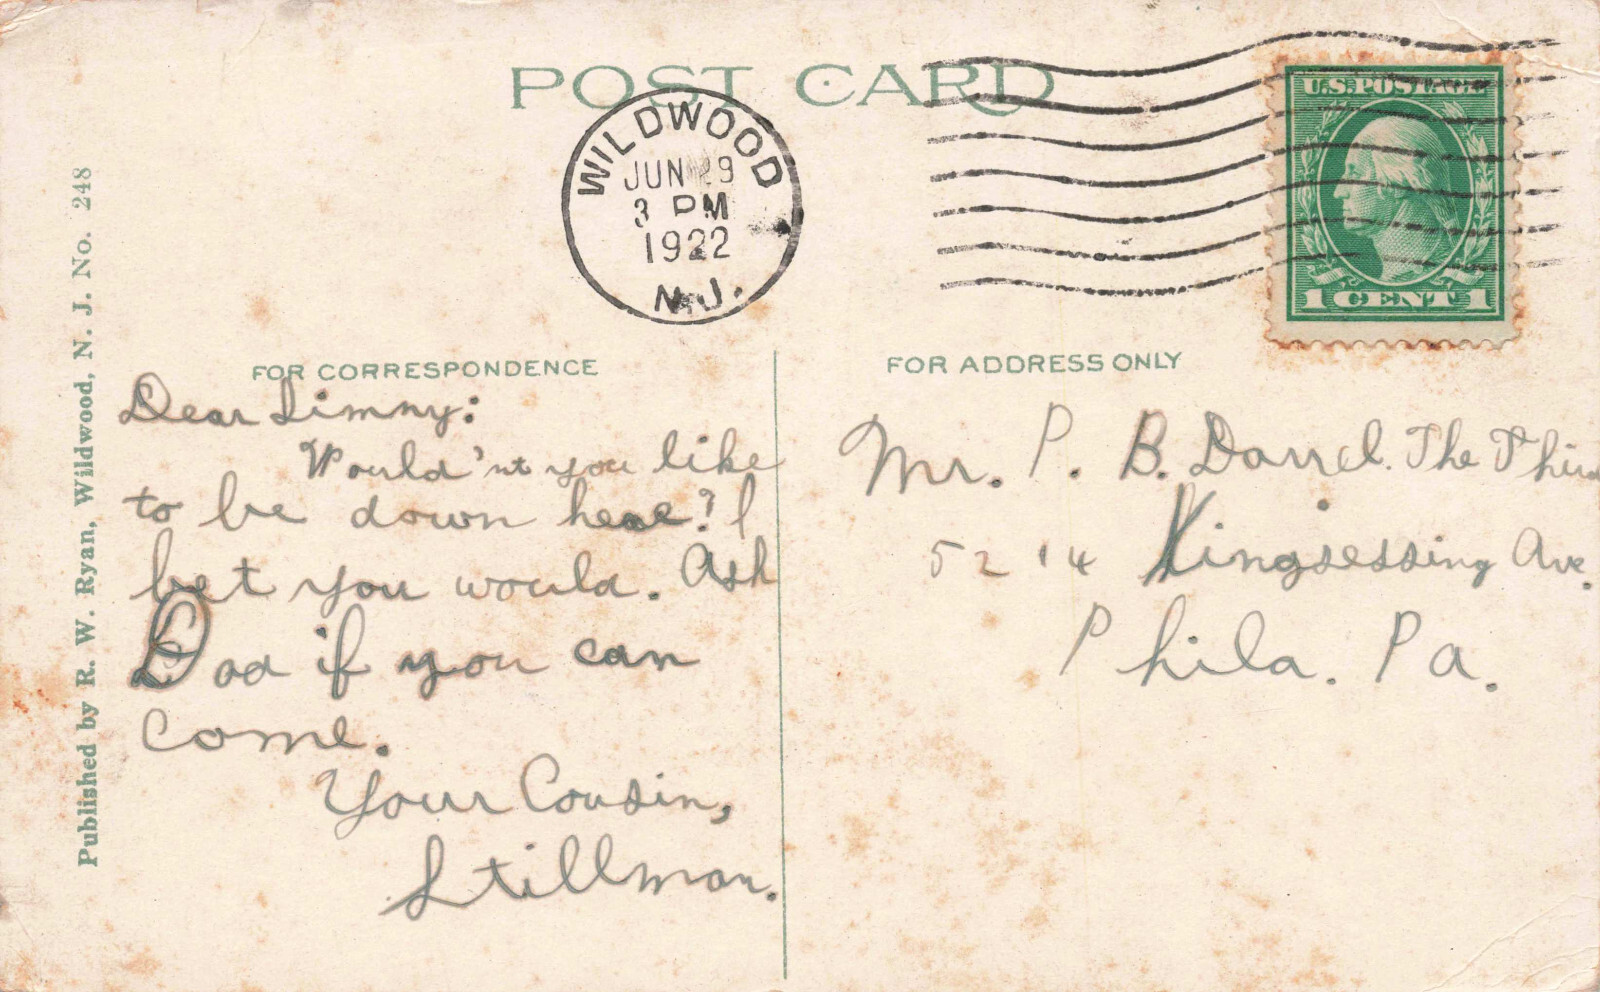 POST CARD
WILDWOOD
JUN 29
3 PM
1922
N.J.
U.S. POSTAGE
1 CENT 1
Published by R. W. Ryan, Wildwood, N. J. No. 248
FOR CORRESPONDENCE
Dear Simmy:
Would'nt you like
to be down here? I
bet you would. Ask
Dad if you can
come.
Your Cousin,
Stillman.
FOR ADDRESS ONLY
Mr. P. B. Darrel. The Third
5214 Kingsessing Ave.
Phila. Pa.